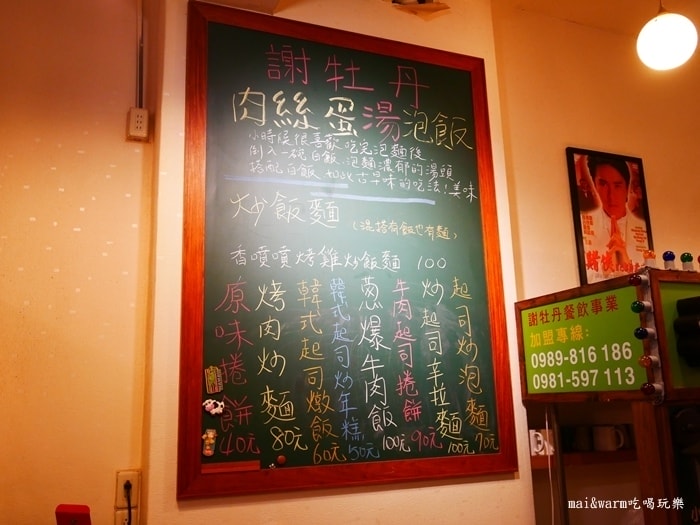 謝牡丹
肉絲蛋湯泡飯
小時候很喜歡吃完泡麵後
倒入一碗白飯.泡麵濃郁的湯頭
搭配白飯.如此古早味的吃法!美味
炒飯麵
(混搭有飯也有麵)
香噴噴烤雞炒飯麵 100
原味捲餅40元
烤肉炒麵80元
韓式起司燉飯60元
韓式起司炒年糕50元
蔥爆牛肉飯100元
牛肉起司捲餅90元
炒起司辛拉麵100元
起司炒泡麵70元
謝牡丹餐飲事業
加盟專線:
0989-816 186
0981-597 113
mai&warm吃喝玩樂